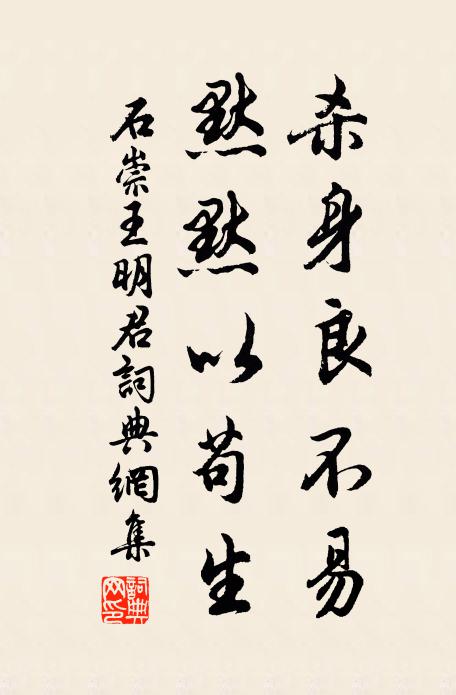 杀身良不易
默默以苟生
石崇王明君詞典網集
詞典網印